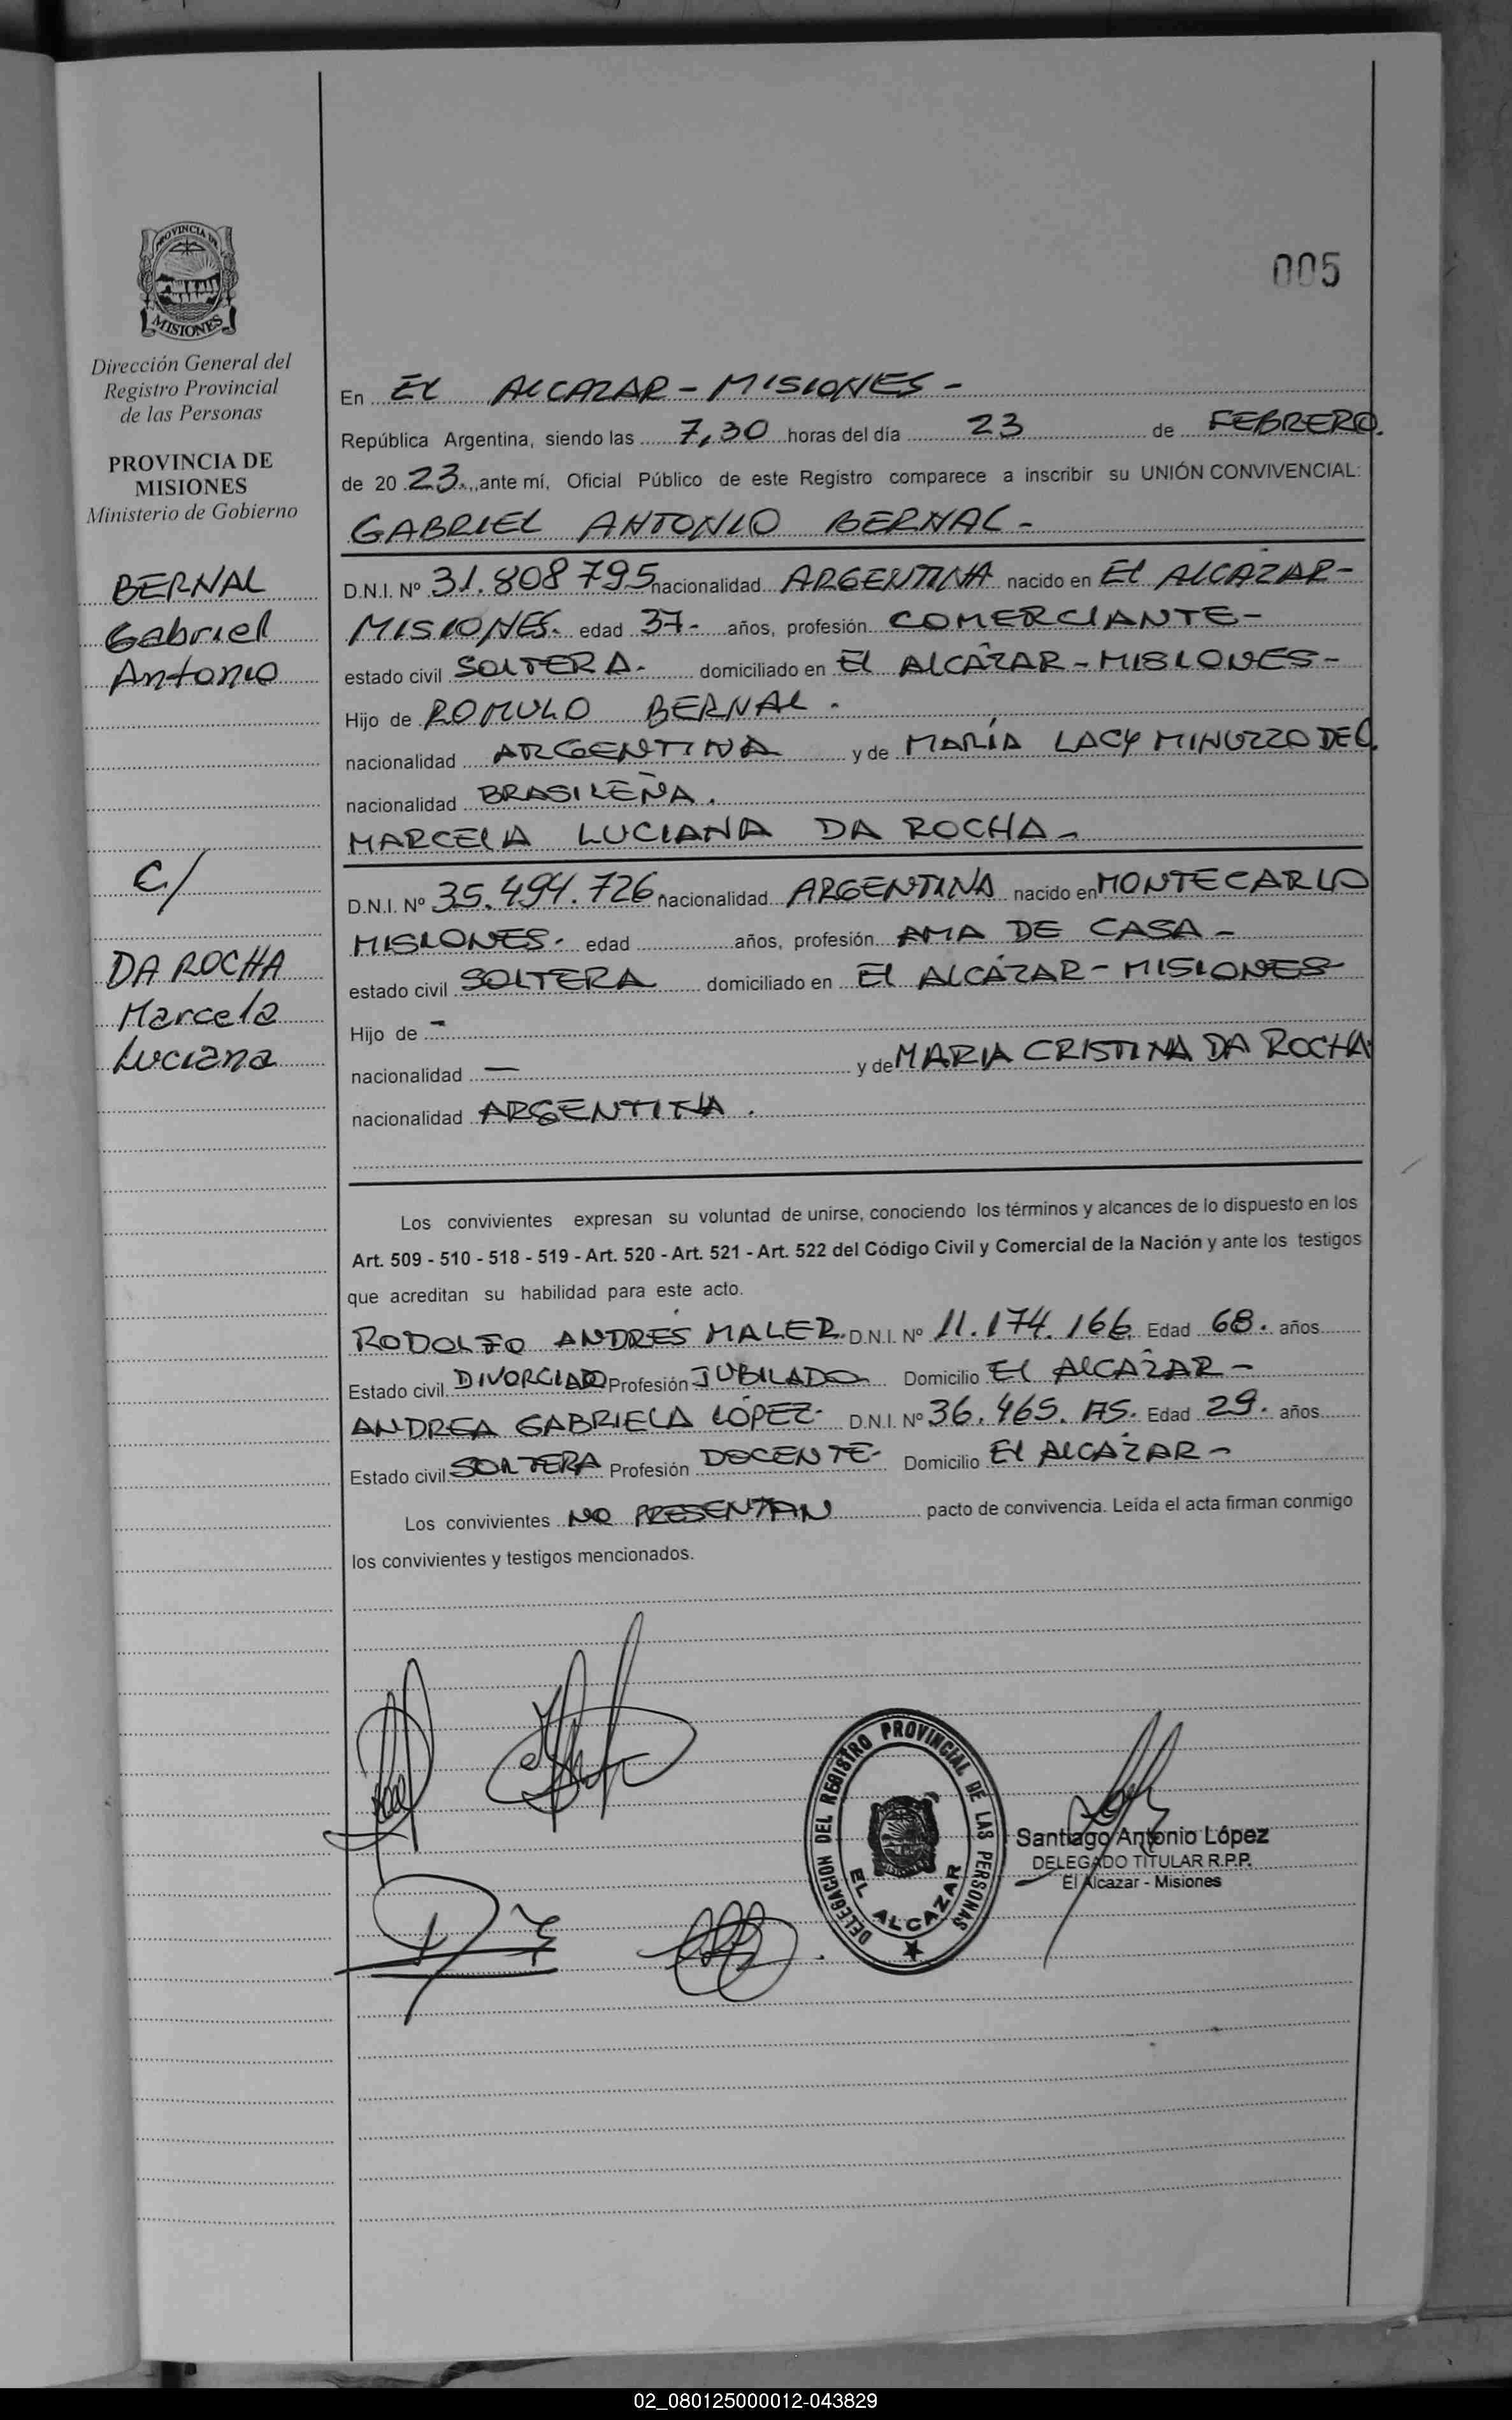 005
PROVINCIA DE
MISIONES
Dirección General del
Registro Provincial
de las Personas
PROVINCIA DE
MISIONES
Ministerio de Gobierno
BERNAL
Gabriel
Antonio
C/
DA ROCHA
Marcela
Luciana
En EL ALCAZAR - MISIONES -
República Argentina, siendo las 7,30 horas del día 23 de FEBRERO.
de 2023., ante mí, Oficial Público de este Registro comparece a inscribir su UNIÓN CONVIVENCIAL:
GABRIEL ANTONIO BERNAL -
D.N.I. Nº 31.808 795 nacionalidad ARGENTINA nacido en El ALCAZAR-
MISIONES. edad 37- años, profesión COMERCIANTE-
estado civil SOLTERA. domiciliado en El ALCÁZAR - MISIONES -
Hijo de ROMULO BERNAL.
nacionalidad ARGENTINA y de MARÍA LACY MINUZZO DE
nacionalidad BRASILEÑA.
MARCELA LUCIANA DA ROCHA -
D.N.I. Nº 35.494.726 nacionalidad ARGENTINA nacido en MONTECARLO
MISIONES- edad años, profesión AMA DE CASA -
estado civil SOLTERA domiciliado en El ALCÁZAR - MISIONES
Hijo de -
nacionalidad — y de MARIA CRISTINA DA ROCHA
nacionalidad ARGENTINA.
Los convivientes expresan su voluntad de unirse, conociendo los términos y alcances de lo dispuesto en los
Art. 509 - 510 - 518 - 519 - Art. 520 - Art. 521 - Art. 522 del Código Civil y Comercial de la Nación y ante los testigos
que acreditan su habilidad para este acto.
RODOLFO ANDRÉS MALER. D.N.I. Nº 11.174.166 Edad 68. años
Estado civil DIVORCIADO Profesión JUBILADO Domicilio El ALCÁZAR -
ANDREA GABRIELA LÓPEZ- D.N.I. Nº 36.465. Edad 29. años
Estado civil SOLTERA Profesión DOCENTE- Domicilio El ALCÁZAR -
Los convivientes NO PRESENTAN pacto de convivencia. Leída el acta firman conmigo
los convivientes y testigos mencionados.
DELEGACION DEL REGISTRO PROVINCIAL DE LAS PERSONAS
EL ALCAZAR
Santiago Antonio López
DELEGADO TITULAR R.P.P.
El Alcazar - Misiones
02_080125000012-043829